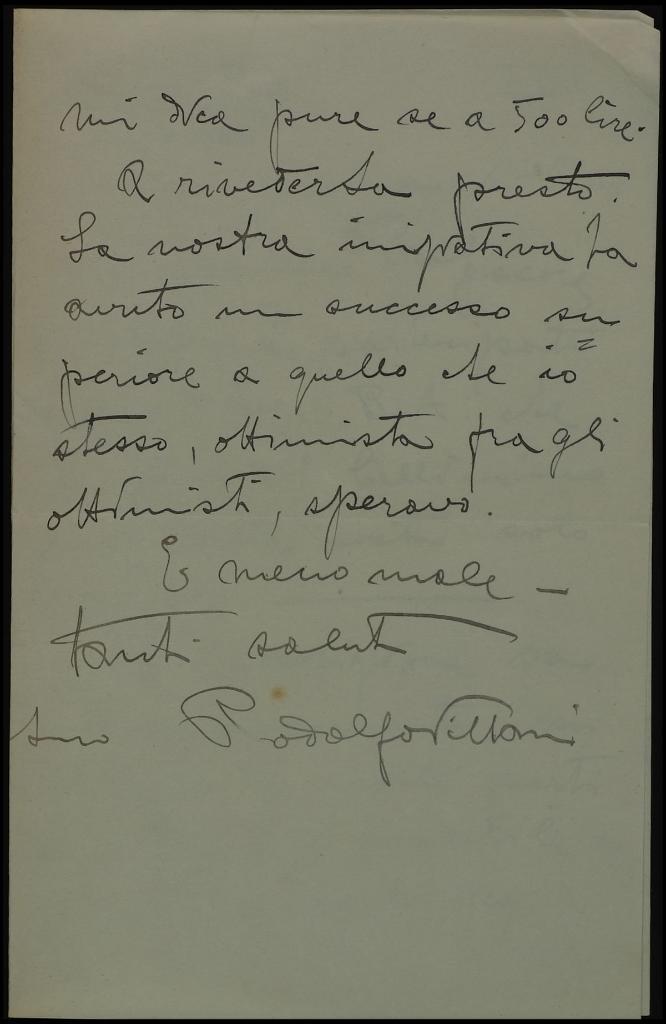 mi dica pure se a 500 lire.
A rivederLa presto.
La nostra iniziativa ha
avuto un successo su=
periore a quello che io
stesso, ottimista fra gli
ottimisti, speravo.
E meno male –
Tanti saluti
suo Rodolfo Villani